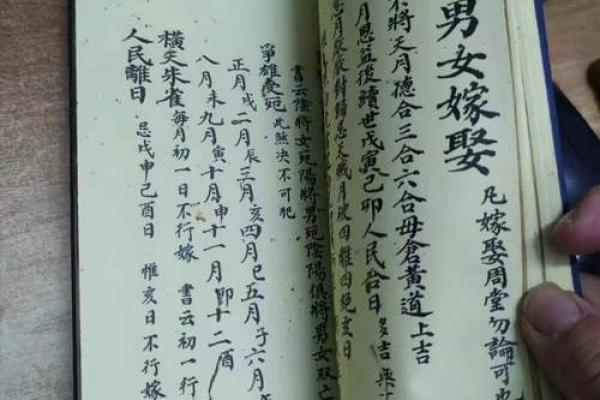 男女嫁娶 凡嫁娶周堂勿論可也
不將天月德合三合六合母倉黃道上吉
月恩益後續世戊寅己卯人民合日 多吉
月厭厭對歸忌天賊月破四離四絕亥日
書云陰將女死陽將男死陰陽俱將男女双亡
爭雄 此煞決不可犯
正月戌二月辰三月亥四月巳五月子六月
八月未九月寅十月申十一月卯十二酉
橫天朱雀 每月初一日不行嫁 書云初一行
人民離日 忌戊申己酉日 惟亥日不行嫁